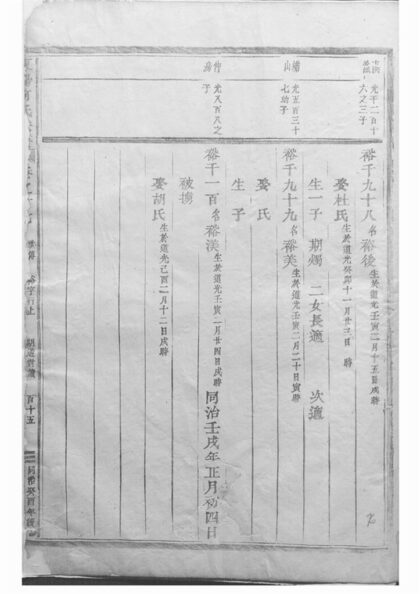 光千二百十
六之三子
裕千九十八名裕後生於道光壬寅二月十五日戌時
娶杜氏生於道光癸卯十一月廿三日 時
生一子 期燭 二女長適 次適
山
光五百三十
七幼子
裕千九十九名裕美生於道光壬寅二月二十日寅時
娶 氏
生 子
仲
光八百八之
子
裕千一百名裕渼生於道光壬寅二月廿四日戌時 同治壬戌年正月初四日
被擄
娶胡氏生於道光己酉二月十二日戌時
裕字行上
百十五
同治癸酉年